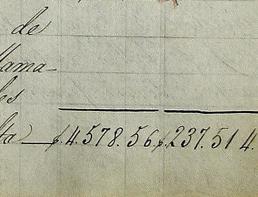 de
llama
les
ta £4.578.56 £237.514.